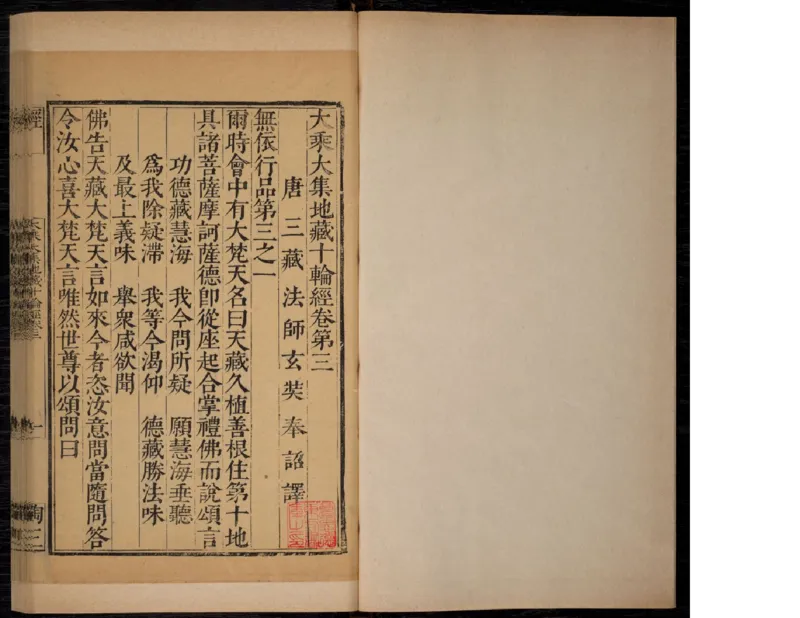 大乘大集地藏十輪經卷第三
唐三藏法師玄奘奉詔譯
無依行品第三之一
爾時會中有大梵天名曰天藏久植善根住第十地
具諸菩薩摩訶薩德卽從座起合掌禮佛而說頌言
功德藏慧海 我今問所疑 願慧海垂聽
爲我除疑滯 我等今渴仰 德藏勝法味
及最上義味 舉衆咸欲聞
佛告天藏大梵天言如來今者恣汝意問當隨問答
令汝心喜大梵天言唯然世尊以頌問曰
經
大乘大集地藏十輪經卷三
一
陶三